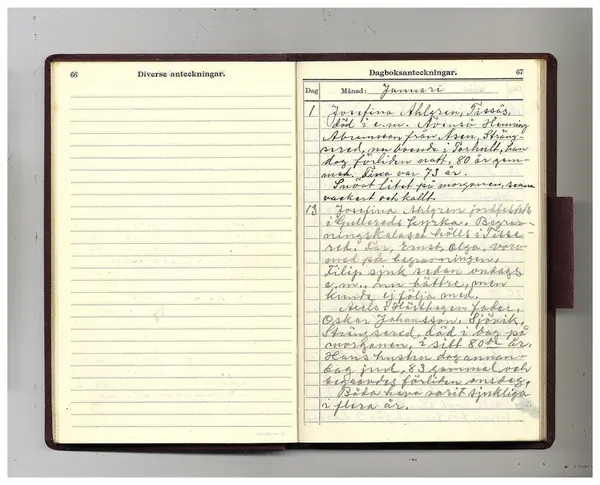 66
Diverse anteckningar.
Dagboksanteckningar.
67
Dag
Månad: Januari
1 Josefina Ahlgren, Tissås,
död i e.m. Även så Henning
Abramsson från Åsen, Sträng-
sered, nu boende i Torhult, han
dog förliden natt, 80 år gam-
mal. Fina var 73 år.
Snöat litet på morgonen, sedan
vackert och kallt.
13 Josefina Ahlgren jordfästes
i Gullereds kyrka. Begrav-
ningskalaset hölls i Tisse-
red. Far, Ernst, Olga, voro
med på begravningen,
Filip sjuk sedan onsdags
e.m., nu bättre, men
kunde ej följa med.
Axels i Höstbogen fader,
Oskar Johansson, Sjövik,
Strängsered, död i dag på
morgonen, i sitt 80de år.
Hans hustru dog annan-
dag jul, 83 gammal och
begravdes förliden onsdag.
Båda hava varit sjukliga
i flera år.